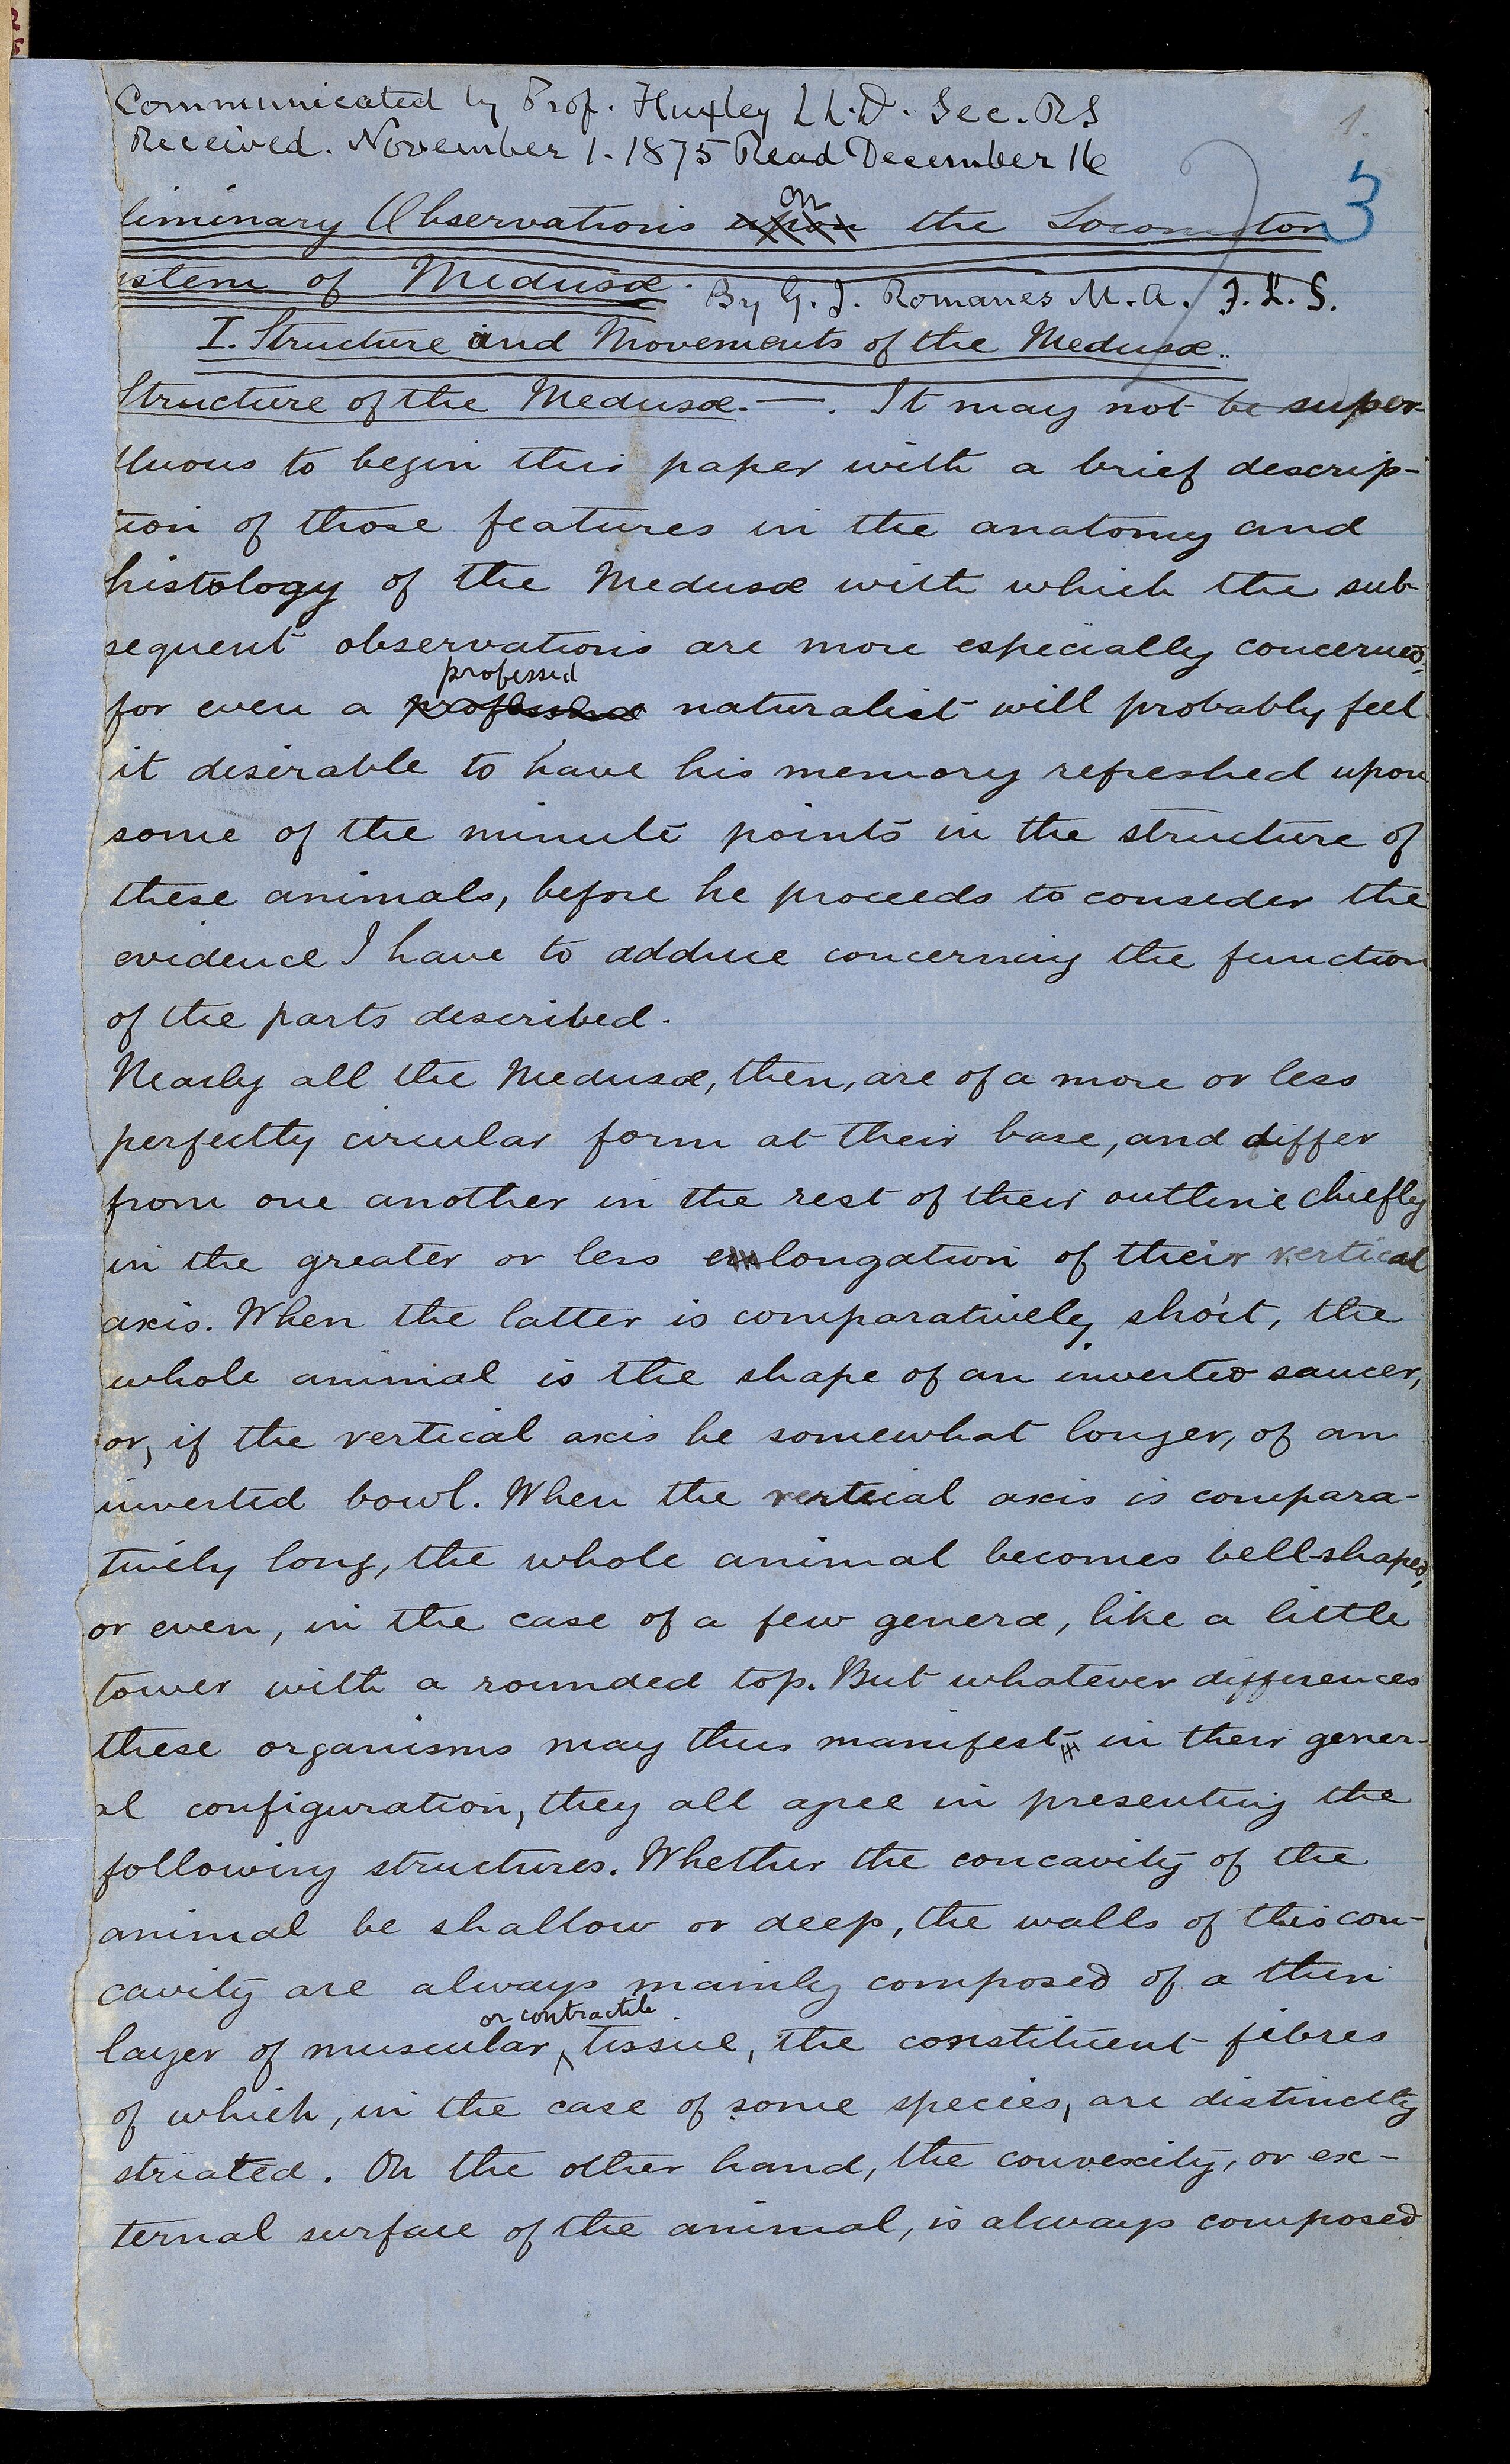 Communicated by Prof. Huxley LL.D. Sec. RS
Received. November 1. 1875 Read December 16
1.
3
liminary Observations on the Locomotor
ystem of Medusæ. By G. J. Romanes M.A. F.L.S.
I. Structure and Movements of the Medusæ.
Structure of the Medusæ.—. It may not be super-
fluous to begin this paper with a brief descrip-
tion of those features in the anatomy and
histology of the Medusæ with which the sub-
sequent observations are more especially concerned,
professed
for even a naturalist will probably feel
it desirable to have his memory refreshed upon
some of the minute points in the structure of
these animals, before he proceeds to consider the
evidence I have to adduce concerning the function
of the parts described.
Nearly all the Medusæ, then, are of a more or less
perfectly circular form at their base, and differ
from one another in the rest of their outline chiefly
in the greater or less elongation of their vertical
axis. When the latter is comparatively short, the
whole animal is the shape of an inverted saucer,
or, if the vertical axis be somewhat longer, of an
inverted bowl. When the vertical axis is compara-
tively long, the whole animal becomes bell-shaped,
or even, in the case of a few genera, like a little
tower with a rounded top. But whatever differences
these organisms may thus manifest in their gener-
al configuration, they all agree in presenting the
following structures. Whether the concavity of the
animal be shallow or deep, the walls of this con-
cavity are always mainly composed of a thin
or contractile
layer of muscular tissue, the constituent fibres
of which, in the case of some species, are distinctly
striated. On the other hand, the convexity, or ex-
ternal surface of the animal, is always composed